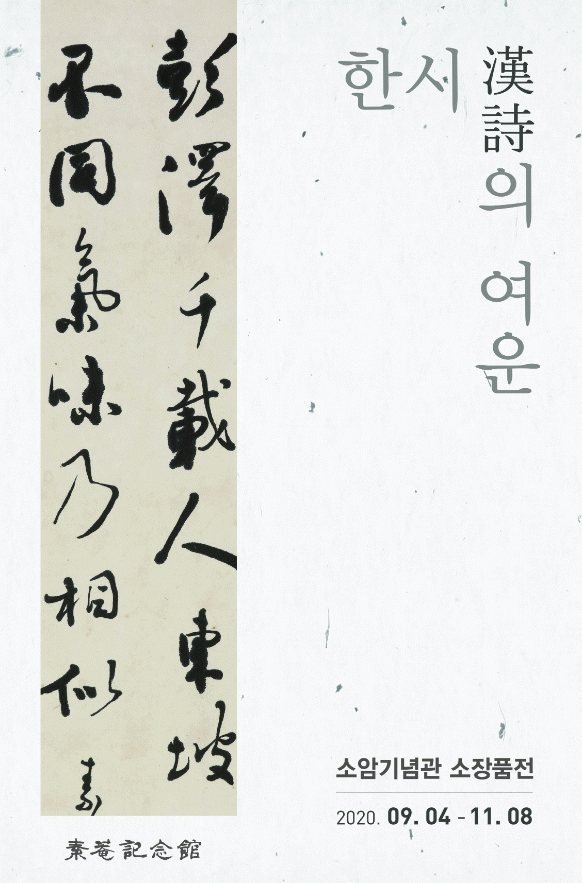 彭澤千載人東坡
不同氣味乃相似 素
한시 漢詩의 여운
소암기념관 소장품전
2020. 09. 04 - 11. 08
素菴記念館